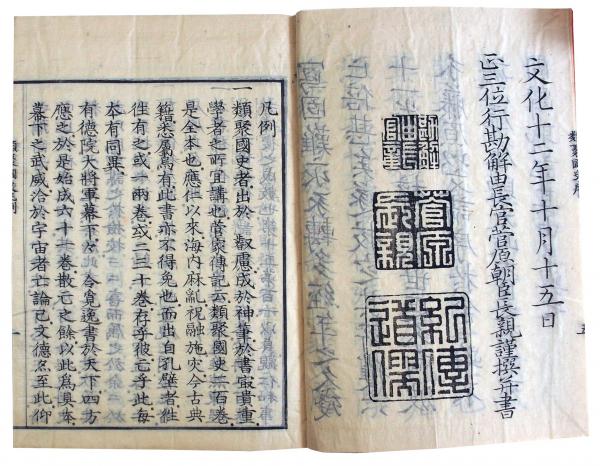 文化十二年十月十五日
正三位行勘解由長官菅原朝臣長親謹撰并書
菅原
長親
紀傳
道儒
凡例
一類聚國史者出於 叡慮成於神筆於書最貴重
學者之所宜講也菅家傳記云類聚國史二百卷
是全本也應仁以來海内麻亂祝融施灾令古典
籍悉属烏有此書亦不得免也而出自孔壁者往
往有之或一兩卷或二三十卷存乎彼亡乎此每
本有同異
有德院大將軍幕下 令 書於天下四方
應之於是始成六十一卷散 之餘以此爲 本
幕下之武威洽於宇宙者亡論已文德 至此仰